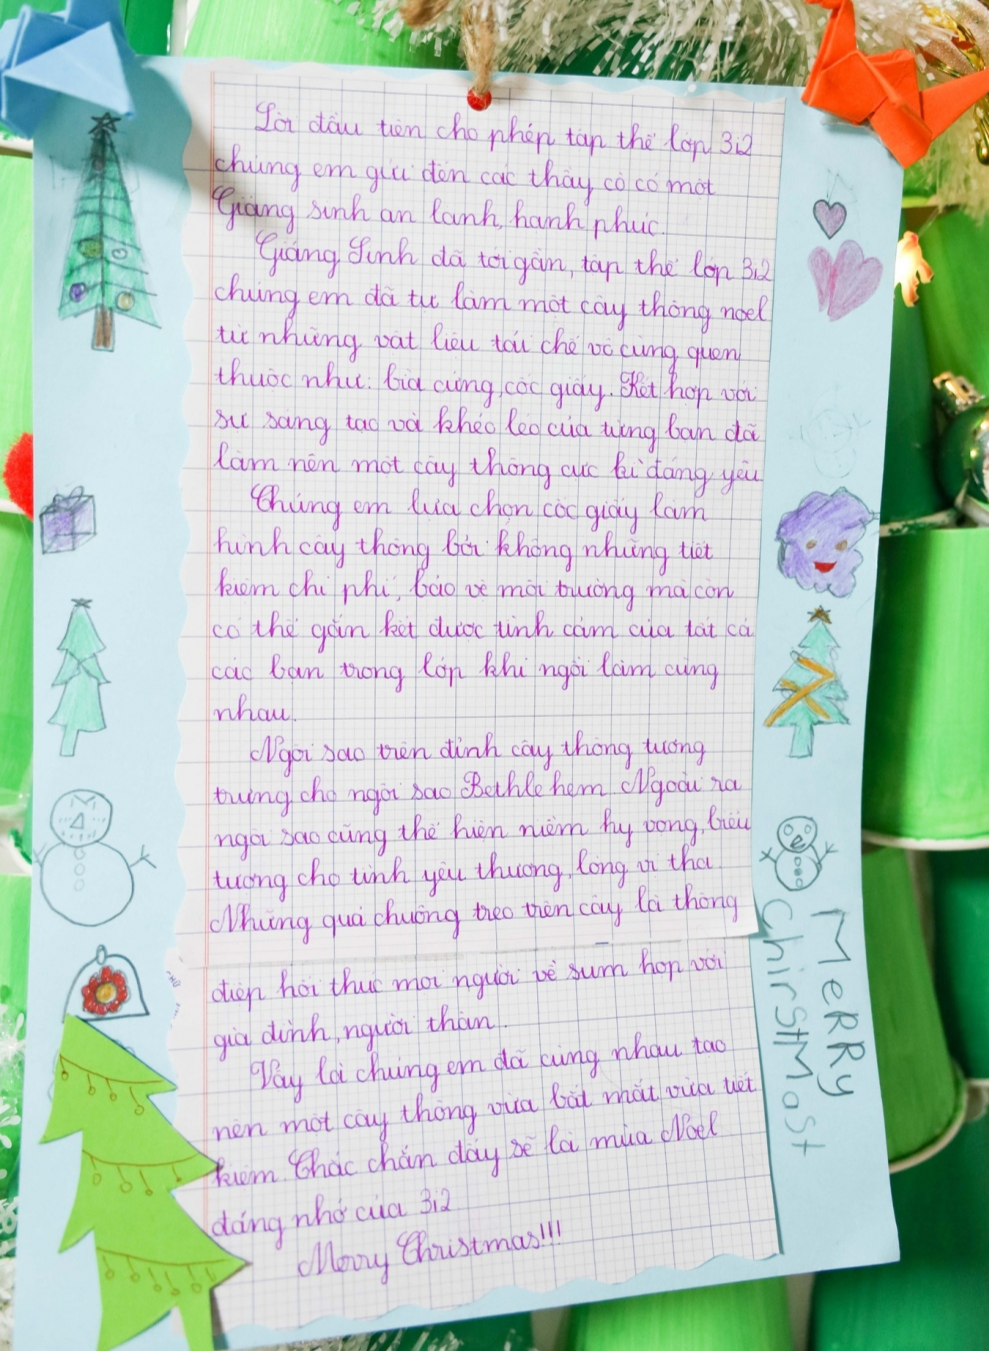 Lời đầu tiên cho phép tập thể lớp 3i2
chúng em gửi đến các thầy cô có một
Giáng sinh an lành, hạnh phúc.
Giáng Sinh đã tới gần, tập thể lớp 3i2
chúng em đã tự làm một cây thông noel
từ những vật liệu tái chế vô cùng quen
thuộc như: bìa cứng, cốc giấy. Kết hợp với
sự sáng tạo và khéo léo của từng bạn đã
làm nên một cây thông cực kì đáng yêu
Chúng em lựa chọn cốc giấy làm
hình cây thông bởi không những tiết
kiệm chi phí, bảo vệ môi trường mà còn
có thể gắn kết được tình cảm của tất cả
các bạn trong lớp khi ngồi làm cùng
nhau.
Ngôi sao trên đỉnh cây thông tượng
trưng cho ngôi sao Bethlehem Ngoài ra
ngôi sao cũng thể hiện niềm hy vọng, biểu
tượng cho tình yêu thương, lòng vị tha
Những quả chuông treo trên cây là thông
điệp hối thúc mọi người về sum họp với
gia đình, người thân.
Vậy là chúng em đã cùng nhau tạo
nên một cây thông vừa bắt mắt vừa tiết
kiệm. Chắc chắn đây sẽ là mùa Noel
đáng nhớ của 3i2
Merry Christmas!!!
MERRy
ChirStMaSt